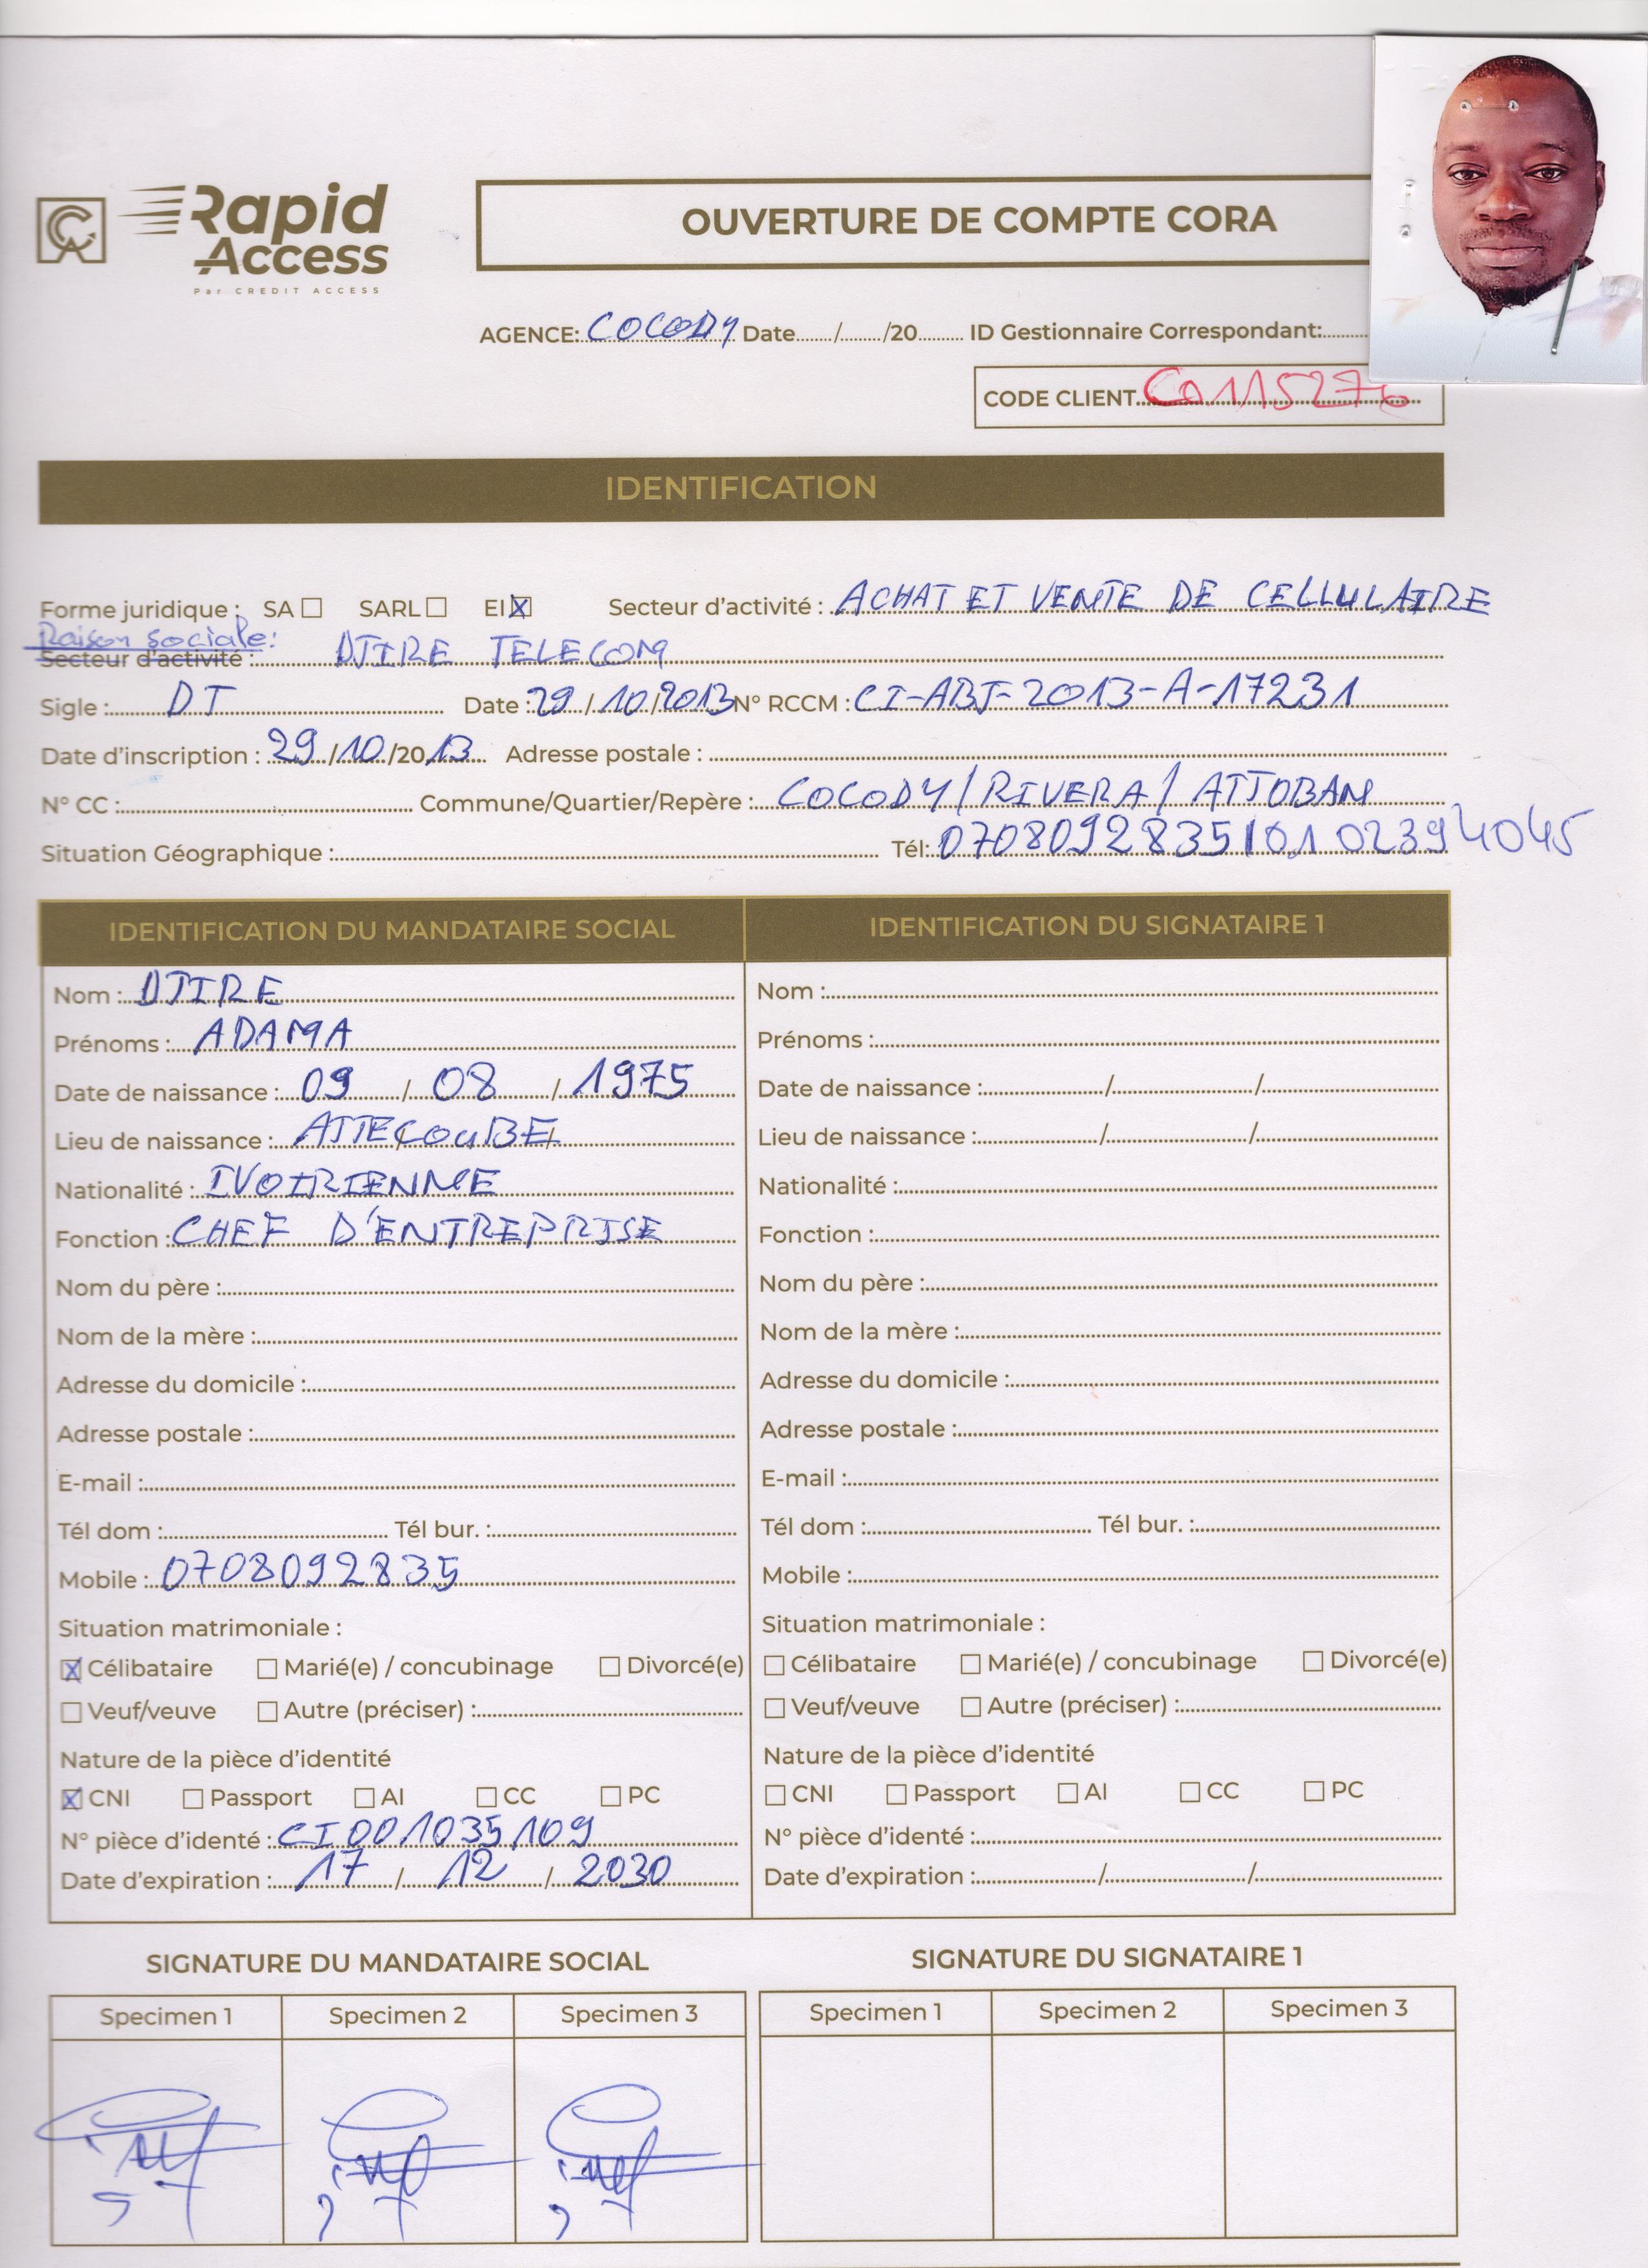 CA
Rapid Access
Par CREDIT ACCESS
OUVERTURE DE COMPTE CORA
AGENCE: COCODY Date....../......../20......... ID Gestionnaire Correspondant:
CODE CLIENT C0115276
IDENTIFICATION
Forme juridique : SA ☐ SARL ☐ EI ☒ Secteur d'activité : ACHAT ET VENTE DE CELLULAIRE
Raison sociale:
Secteur d'activité : DJIRE TELECOM
Sigle : DT Date : 29/10/2013 N° RCCM : CI-ABJ-2013-A-17231
Date d'inscription : 29/10/2013 Adresse postale :
N° CC : Commune/Quartier/Repère : COCODY/RIVERA/ATTOBAN
Situation Géographique : Tél: 0708092835/0102394045
IDENTIFICATION DU MANDATAIRE SOCIAL
Nom : DJIRE
Prénoms : ADAMA
Date de naissance : 09/08/1975
Lieu de naissance : ATTECOUBE
Nationalité : IVOIRIENNE
Fonction : CHEF D'ENTREPRISE
Nom du père :
Nom de la mère :
Adresse du domicile :
Adresse postale :
E-mail :
Tél dom : Tél bur. :
Mobile : 0708092835
Situation matrimoniale :
☒ Célibataire ☐ Marié(e) / concubinage ☐ Divorcé(e)
☐ Veuf/veuve ☐ Autre (préciser) :
Nature de la pièce d'identité
☒ CNI ☐ Passport ☐ AI ☐ CC ☐ PC
N° pièce d'identé : CI001035109
Date d'expiration : 17/12/2030
IDENTIFICATION DU SIGNATAIRE 1
Nom :
Prénoms :
Date de naissance : / /
Lieu de naissance : / /
Nationalité :
Fonction :
Nom du père :
Nom de la mère :
Adresse du domicile :
Adresse postale :
E-mail :
Tél dom : Tél bur. :
Mobile :
Situation matrimoniale :
☐ Célibataire ☐ Marié(e) / concubinage ☐ Divorcé(e)
☐ Veuf/veuve ☐ Autre (préciser) :
Nature de la pièce d'identité
☐ CNI ☐ Passport ☐ AI ☐ CC ☐ PC
N° pièce d'identé :
Date d'expiration : / /
SIGNATURE DU MANDATAIRE SOCIAL
Specimen 1 Specimen 2 Specimen 3
SIGNATURE DU SIGNATAIRE 1
Specimen 1 Specimen 2 Specimen 3